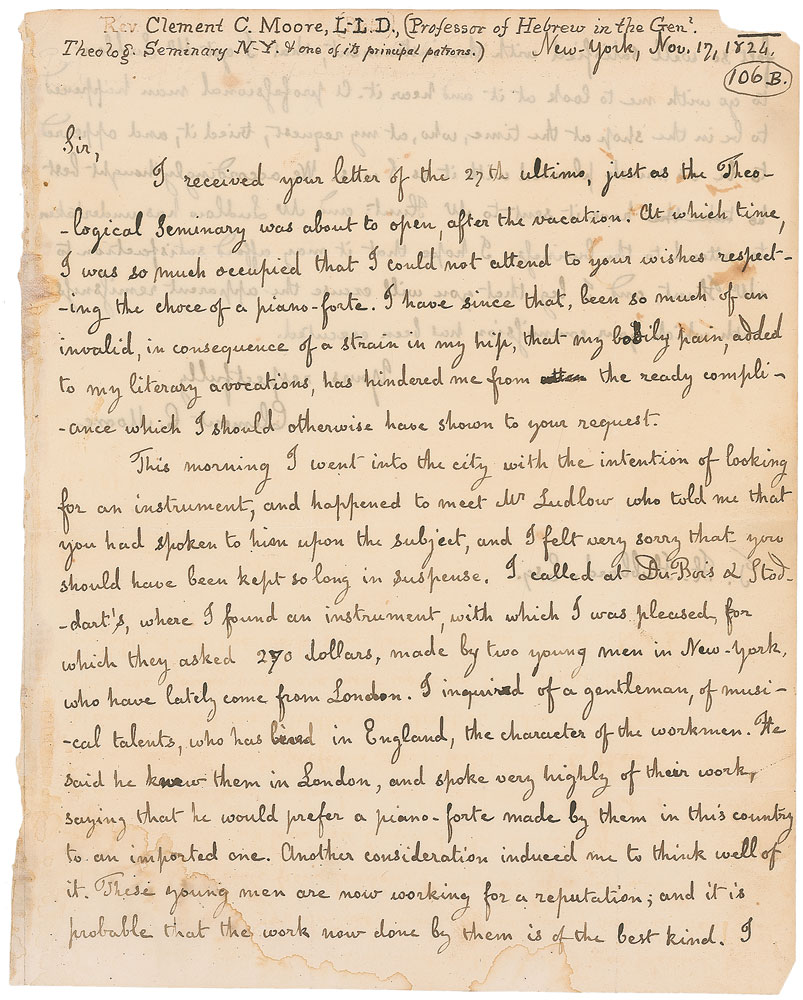 Rev Clement C. Moore, L-L.D., (Professor of Hebrew in the Genl.
Theolog. Seminary N-Y. & one of its principal patrons.) New-York, Nov. 17, 1824.
106 B.
Sir,
I received your letter of the 27th ultimo, just as the Theo-
-logical Seminary was about to open, after the vacation. At which time,
I was so much occupied that I could not attend to your wishes respect-
-ing the choce of a piano-forte. I have since that, been so much of an
invalid, in consequence of a strain in my hip, that my bodily pain, added
to my literary avocations, has hindered me from the ready compli-
-ance which I should otherwise have shown to your request.
This morning I went into the city with the intention of looking
for an instrument, and happened to meet Mr Ludlow who told me that
you had spoken to him upon the subject, and I felt very sorry that you
should have been kept so long in suspense. I called at Du-Bois & Stod-
-dart's, where I found an instrument, with which I was pleased, for
which they asked 270 dollars, made by two young men in New-York,
who have lately come from London. I inquired of a gentleman, of musi-
-cal talents, who has lived in England, the character of the workmen. He
said he knew them in London, and spoke very highly of their work,
saying that he would prefer a piano-forte made by them in this country
to an imported one. Another consideration induced me to think well of
it. These young men are now working for a reputation; and it is
probable that the work now done by them is of the best kind. I